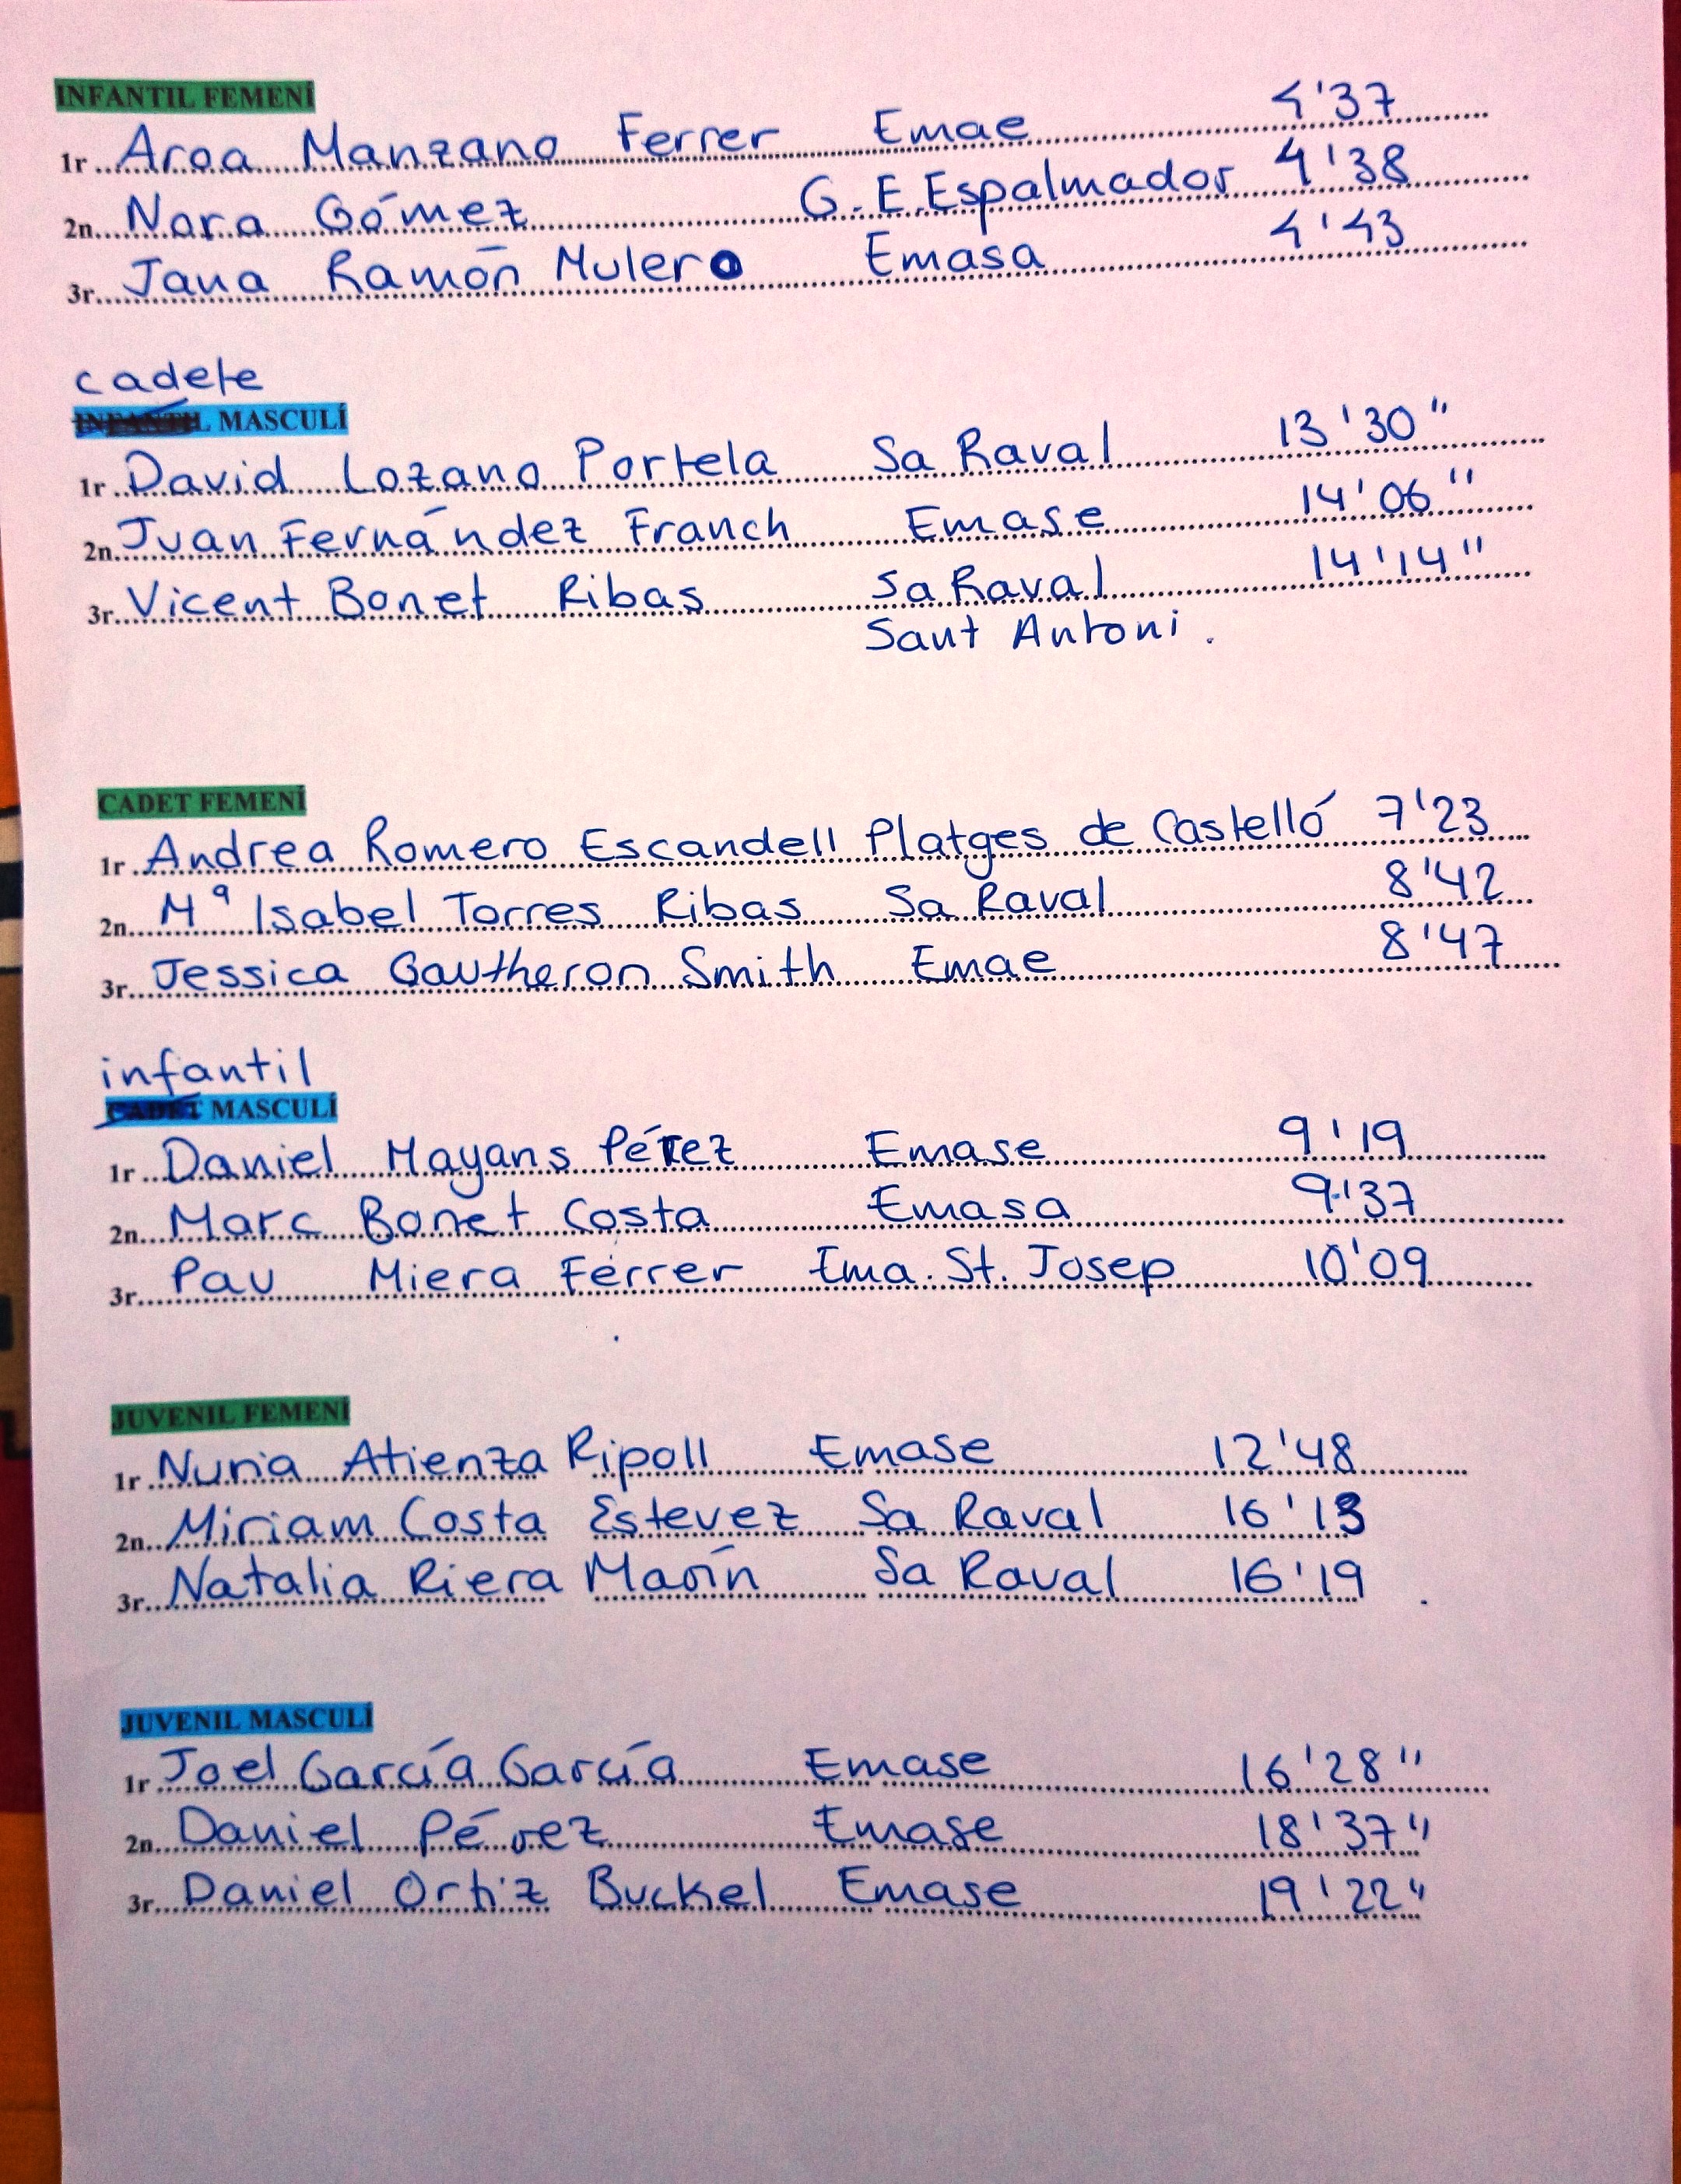 INFANTIL FEMENÍ
1r Aroa Manzano Ferrer Emae 4'37
2n Nora Gómez G.E.Espalmador 4'38
3r Jana Ramón Mulero Emasa 4'43
cadete
INFANTIL MASCULÍ
1r David Lozano Portela Sa Raval 13'30"
2n Juan Fernández Franch Emase 14'06"
3r Vicent Bonet Ribas Sa Raval 14'14"
Sant Antoni.
CADET FEMENÍ
1r Andrea Romero Escandell Platges de Castelló 7'23
2n Mª Isabel Torres Ribas Sa Raval 8'42
3r Jessica Gautheron Smith Emae 8'47
infantil
CADET MASCULÍ
1r Daniel Mayans Pérez Emase 9'19
2n Marc Bonet Costa Emasa 9'37
3r Pau Miera Ferrer Ema. St. Josep 10'09
JUVENIL FEMENÍ
1r Nuria Atienza Ripoll Emase 12'48
2n Miriam Costa Estevez Sa Raval 16'13
3r Natalia Riera Marín Sa Raval 16'19
JUVENIL MASCULÍ
1r Joel García García Emase 16'28"
2n Daniel Pérez Emase 18'37"
3r Daniel Ortiz Buckel Emase 19'22"